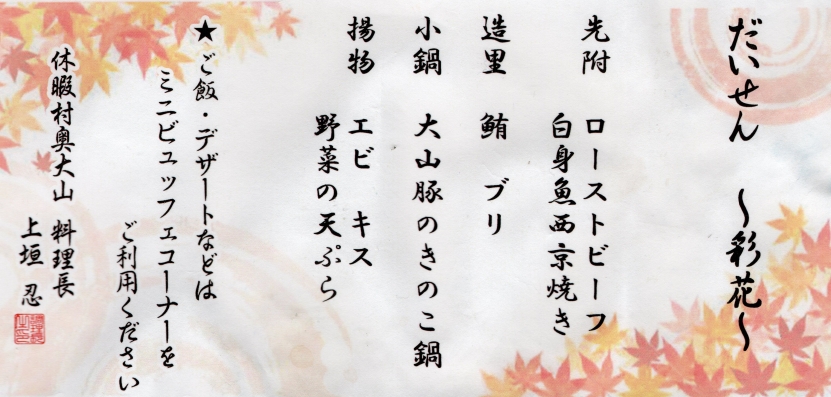 だいせん　～彩花～
先附　ローストビーフ
白身魚西京焼き
造里　鮪　ブリ
小鍋　大山豚のきのこ鍋
揚物　エビ　キス
野菜の天ぷら
★ご飯・デザートなどは
ミニビュッフェコーナーを
ご利用ください
休暇村奥大山　料理長
上垣　忍